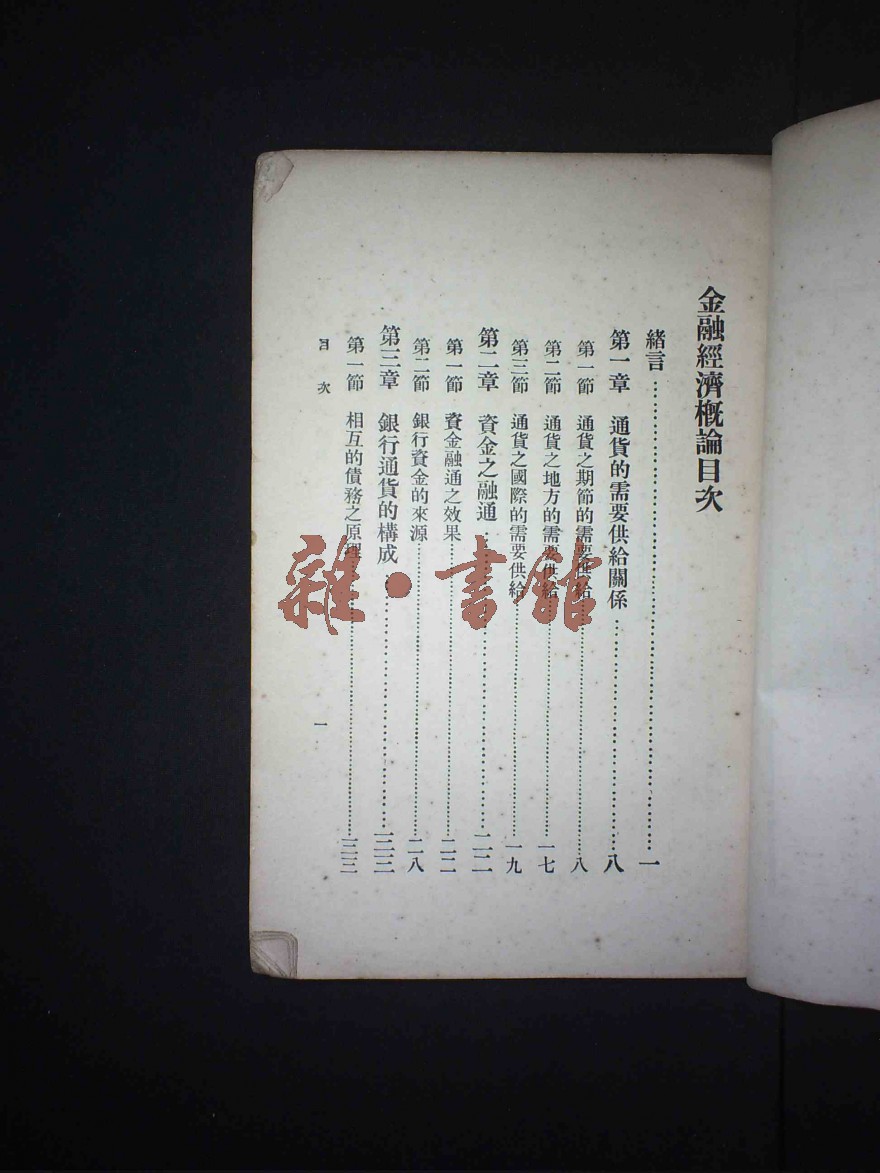 金融經濟概論目次
緒言……………………一
第一章　通貨的需要供給關係……………………八
第一節　通貨之期節的需要供給……………………八
第二節　通貨之地方的需要供給……………………一七
第三節　通貨之國際的需要供給……………………一九
第二章　資金之融通……………………二二
第一節　資金融通之效果……………………二二
第二節　銀行資金的來源……………………二八
第三章　銀行通貨的構成……………………三三
第一節　相互的債務之原理……………………三三
目次　一
雜·書館